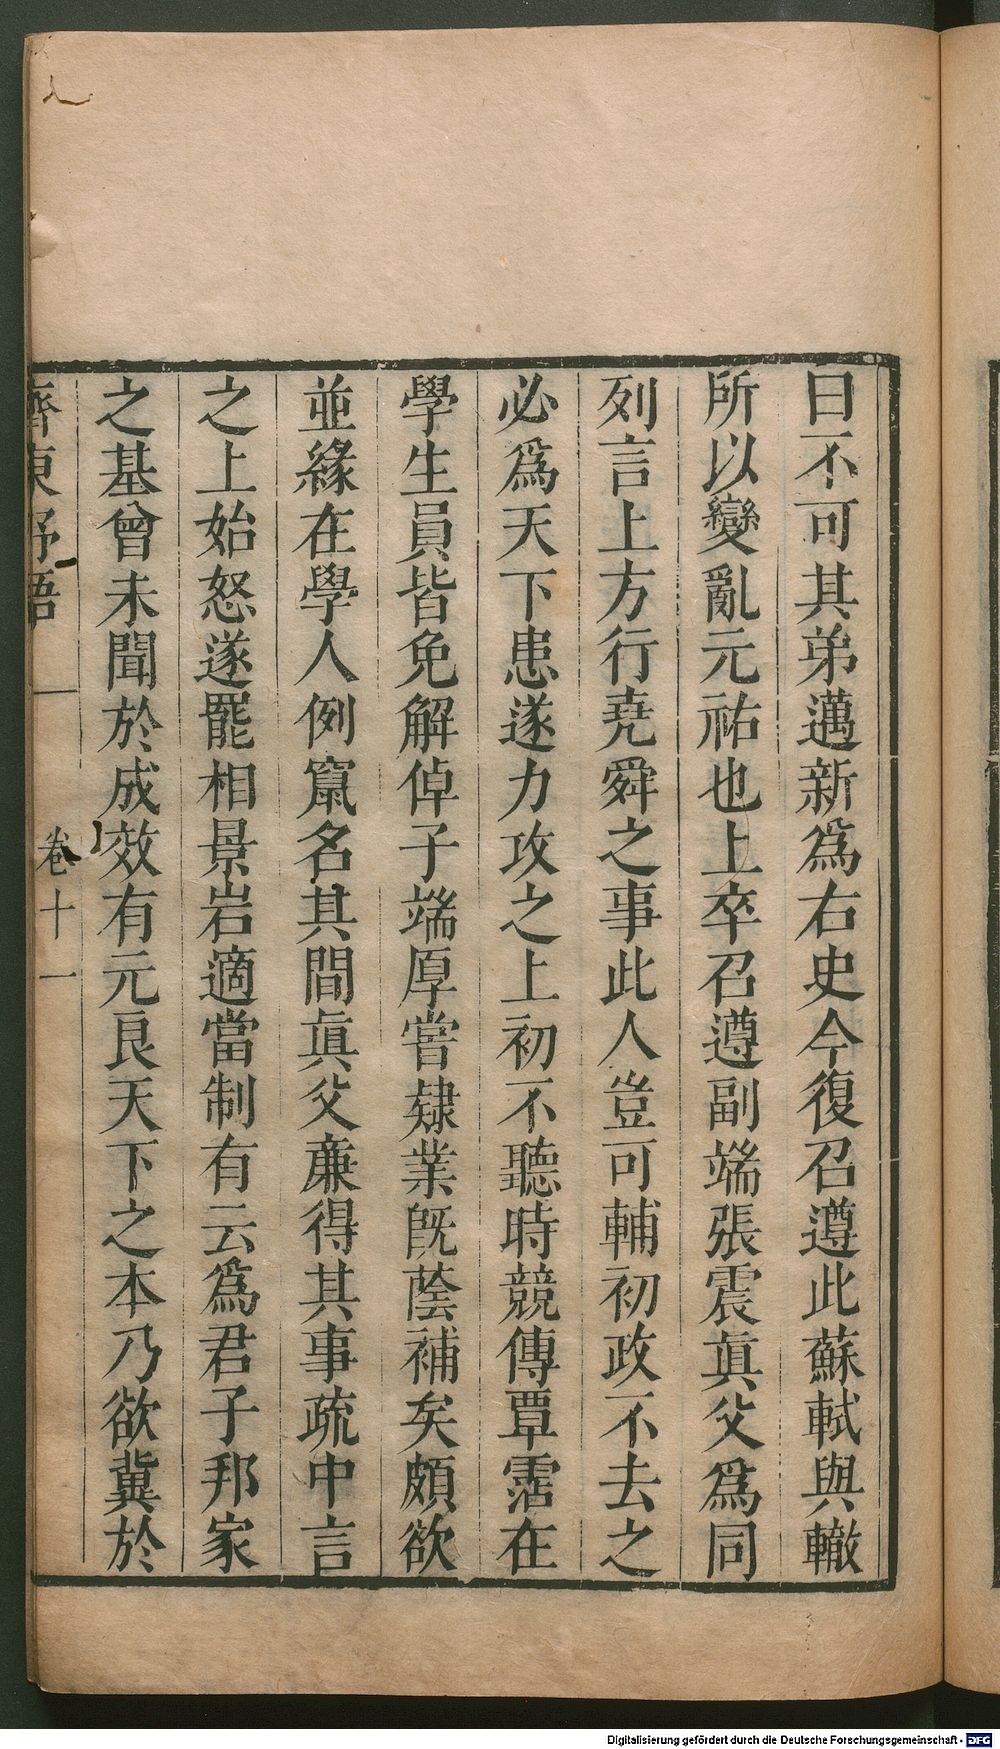 曰不可其弟邁新爲右史今復召遵此蘇軾與轍
所以變亂元祐也上卒召遵副端張震眞父爲同
列言上方行堯舜之事此人豈可輔初政不去之
必爲天下患遂力攻之上初不聽時競傳覃霈在
學生員皆免解倬子端厚嘗隸業旣蔭補矣頗欲
並緣在學人例竄名其間眞父亷得其事疏中言
之上始怒遂罷相景岩適當制有云爲君子邦家
之基曾未聞於成效有元良天下之本乃欲冀於
齊東野語 卷十一
Digitalisierung gefördert durch die Deutsche Forschungsgemeinschaft - DFG